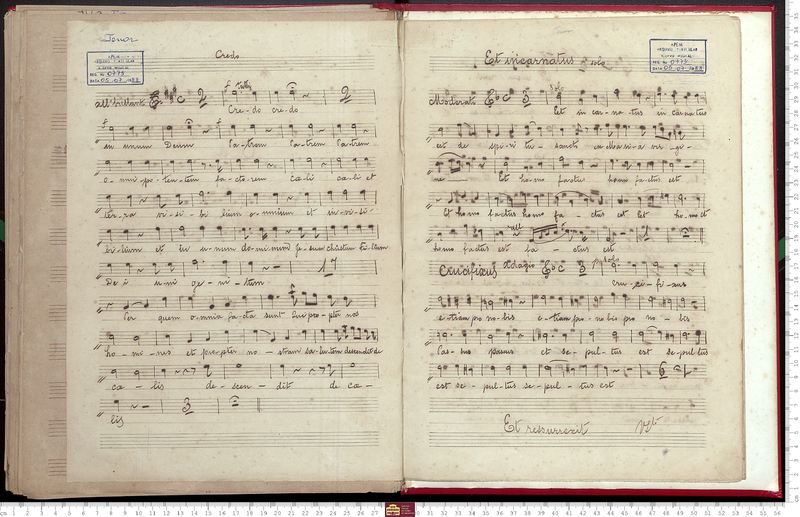 Tenor
Credo
all° brillante
f tutti
Cre-do cre-do
in unum Deum Pa-trem Pa-trem Pa-trem
o-mni-po-ten-tem fa-cto-rem cæ-li cæ-li et
ter-ra vi-si-bi-lium o-mnium et in-vi-si-
bi-lium et in u-num do-mi-num Je-sum christum fi-lium
De-i u-ni ge-ni-tum
Per quem o-mnia fa-cta sunt Qui pro-pter nos
ho-mi-nes et pro-pter no-stram sa-lu-tem descendit de
cæ-lis de-scen-dit de cæ-
lis
Et incarnatus solo
Moderato
solo
Et in car-na-tus in carnatus
est de spi-ri tu- sancto ex Maria vir-gi-
ne Et ho-mo factus homo factus est
Et homo factus homo fa-ctus est Et ho-mo et
rall
homo factus est fa-ctus est
Crucifixus Adagio
solo
cru-ci-fi-xus
e-tiam pro no-bis e-tiam pro no-bis pro no-bis
Pas-sus passus et se-pul-tus est se-pul-tus
est se-pul-tus se-pul-tus est
Et ressurrexit